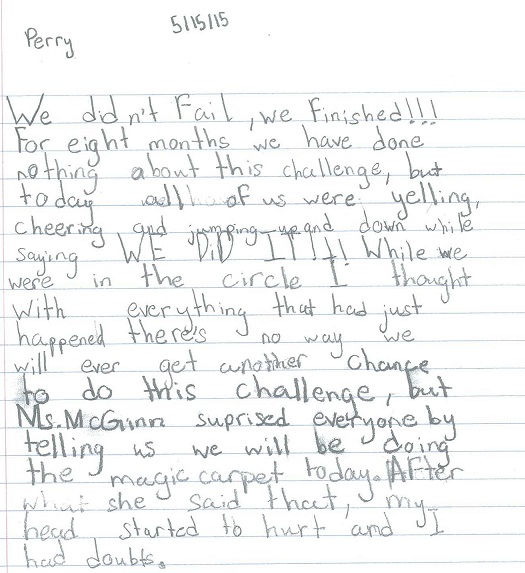 5/15/15
Perry
We didn't Fail, we Finished!!!
For eight months we have done
nothing about this challenge, but
today all of us were yelling,
cheering and jumping up and down while
saying WE DiD IT!!!! While we
were in the circle I thought
With everything that had just
happened there's no way we
will ever get another chance
to do this challenge, but
Ms. McGinn suprised everyone by
telling us we will be doing
the magic carpet today. After
what she said that, my
head started to hurt and I
had doubts.